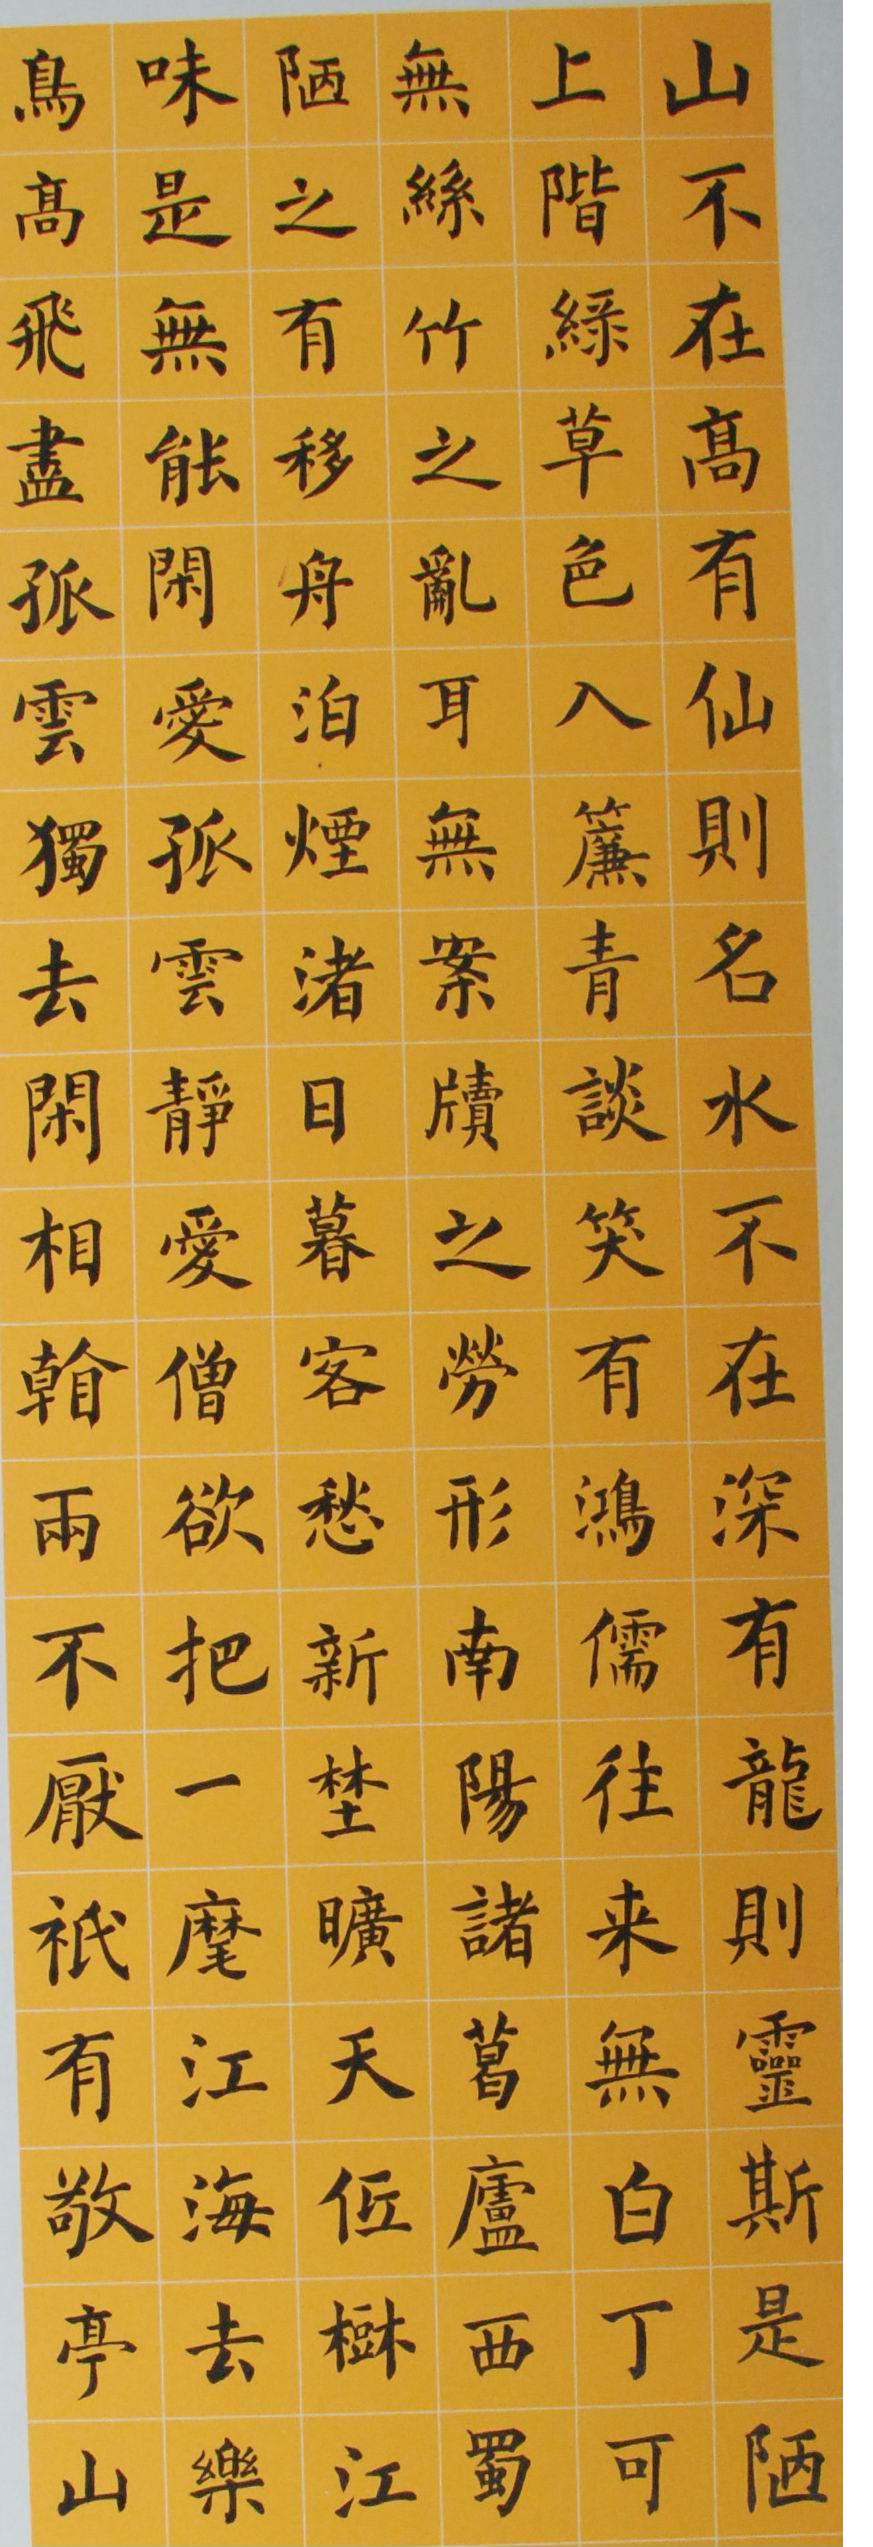 山不在髙有仙則名水不在深有龍則靈斯是陋
上階緑草色入簾青談笑有鴻儒往来無白丁可
無絲竹之亂耳無案牘之勞形南陽諸葛廬西蜀
陋之有移舟泊煙渚日暮客愁新埜曠天低樹江
味是無能閑愛孤雲靜愛僧欲把一麾江海去樂
鳥髙飛盡孤雲獨去閑相看兩不厭祇有敬亭山